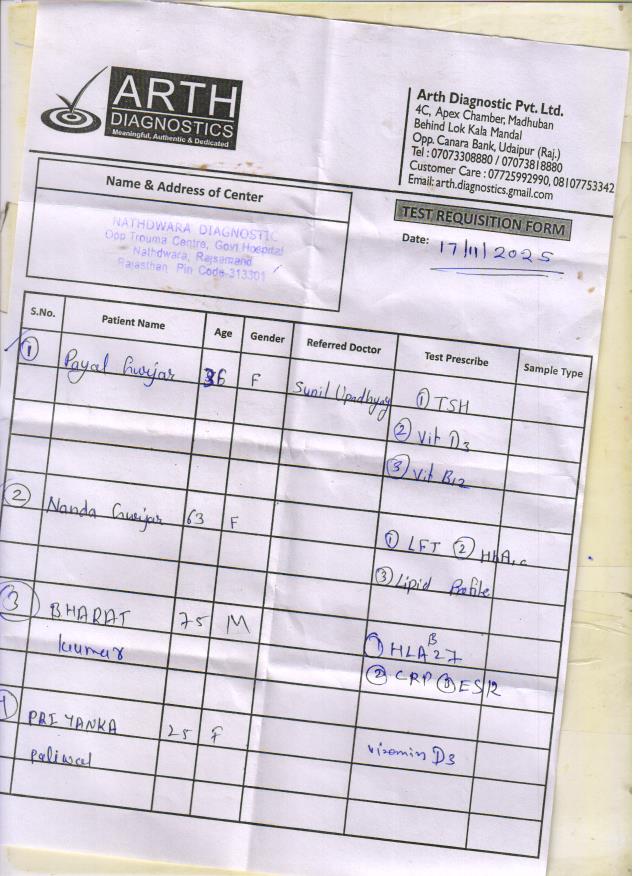 ARTH
DIAGNOSTICS
Meaningful, Authentic & Dedicated
Arth Diagnostic Pvt. Ltd.
4C, Apex Chamber, Madhuban
Behind Lok Kala Mandal
Opp. Canara Bank, Udaipur (Raj.)
Tel : 07073308880 / 07073818880
Customer Care : 07725992990, 08107753342
Email: arth.diagnostics.gmail.com
Name & Address of Center
NATHDWARA DIAGNOSTIC
Opp Trouma Centre, Govt Hospital
Nathdwara, Rajsamand
Rajasthan Pin Code-313301
TEST REQUISITION FORM
Date: 17/11/2025
S.No. Patient Name Age Gender Referred Doctor Test Prescribe Sample Type
1 Payal Gurjar 36 F Sunil Upadhyay 1 TSH
2 Vit D3
3 Vit B12
2 Nanda Gurjar 63 F
1 LFT 2 HbA1c
3 Lipid Profile
3 BHARAT 75 M 1 HLA B 27
kumar 2 CRP 3 ESR
4 PRIYANKA 25 F
paliwal Vitamin D3